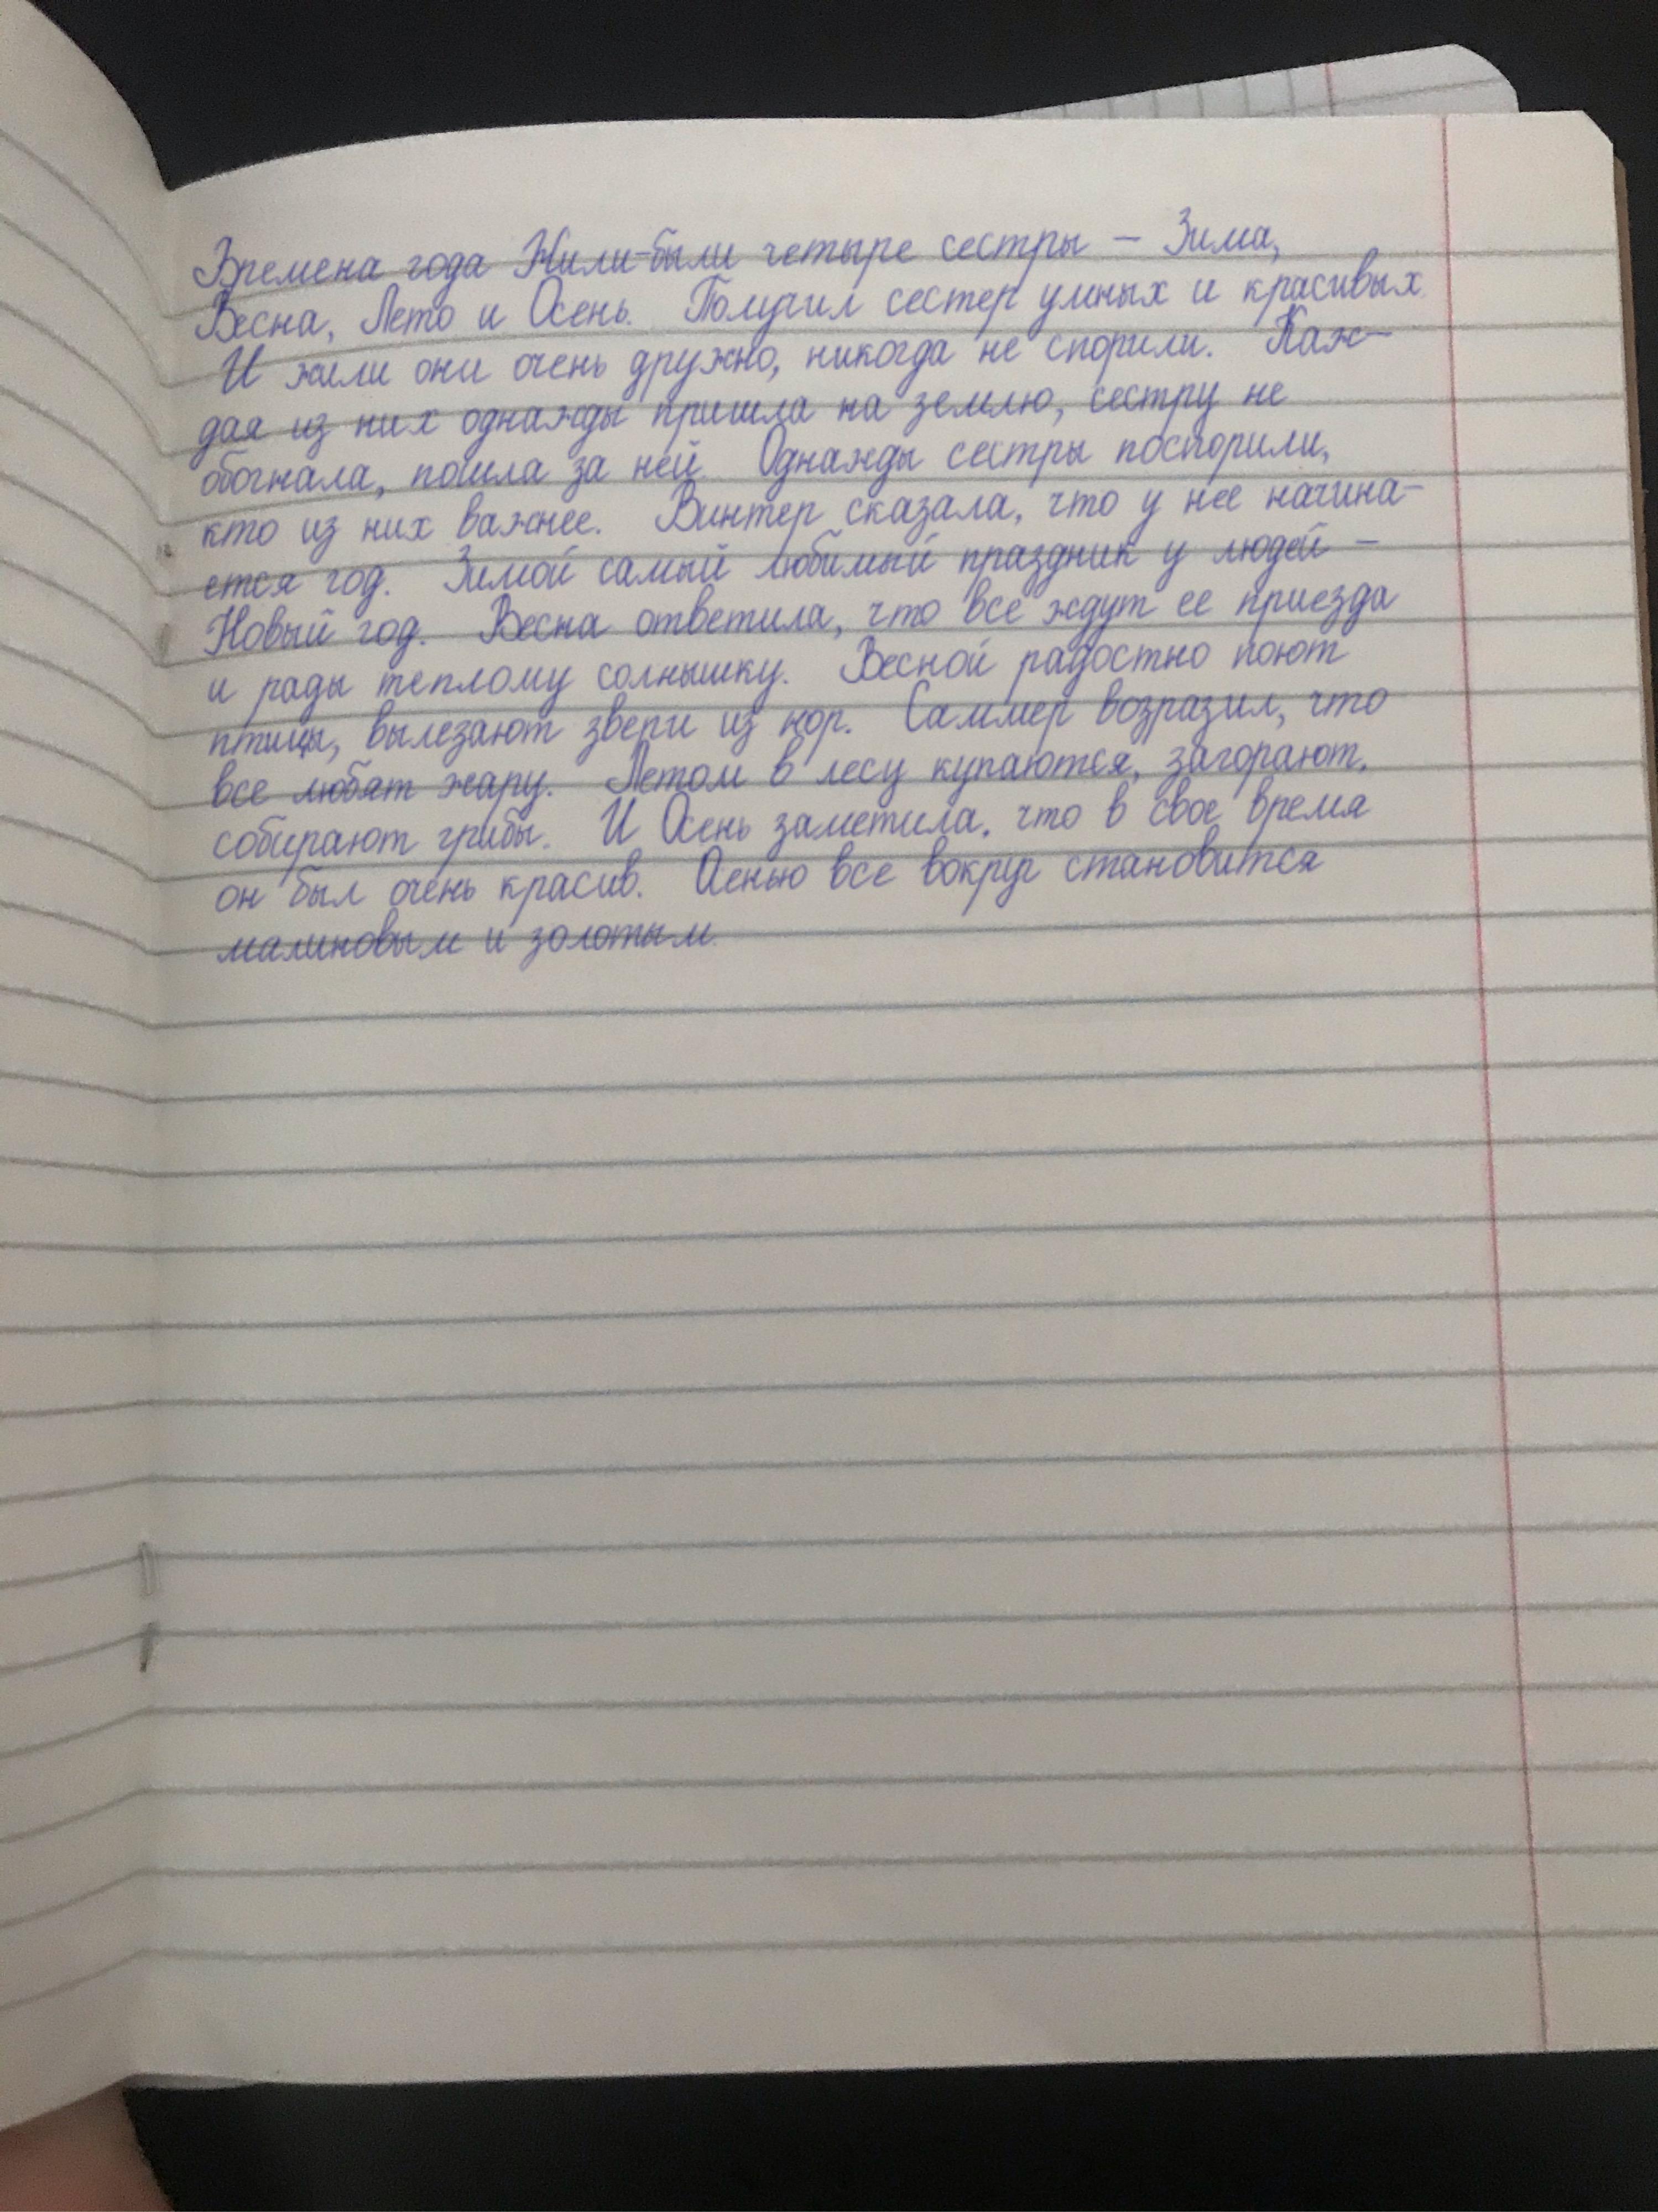 Времена года Жили-были четыре сестры – Зима,
Весна, Лето и Осень. Получил сестер умных и красивых.
И жили они очень дружно, никогда не спорили. Каж-
дая из них однажды пришла на землю, сестру не
обогнала, пошла за ней. Однажды сестры поспорили,
кто из них важнее. Винтер сказала, что у нее начина-
ется год. Зимой самый любимый праздник у людей –
Новый год. Весна ответила, что все ждут ее приезда
и рады теплому солнышку. Весной радостно поют
птицы, вылезают звери из нор. Саммер возразил, что
все любят жару. Летом в лесу купаются, загорают,
собирают грибы. И Осень заметила, что в свое время
он был очень красив. Осенью все вокруг становится
малиновым и золотым.